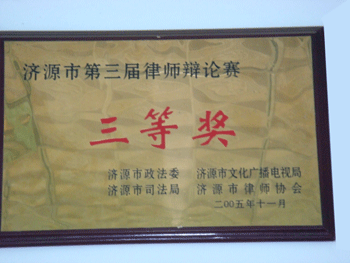 济源市第三届律师辩论赛
三等奖
济源市政法委 济源市文化广播电视局
济源市司法局 济源市律师协会
二00五年十一月